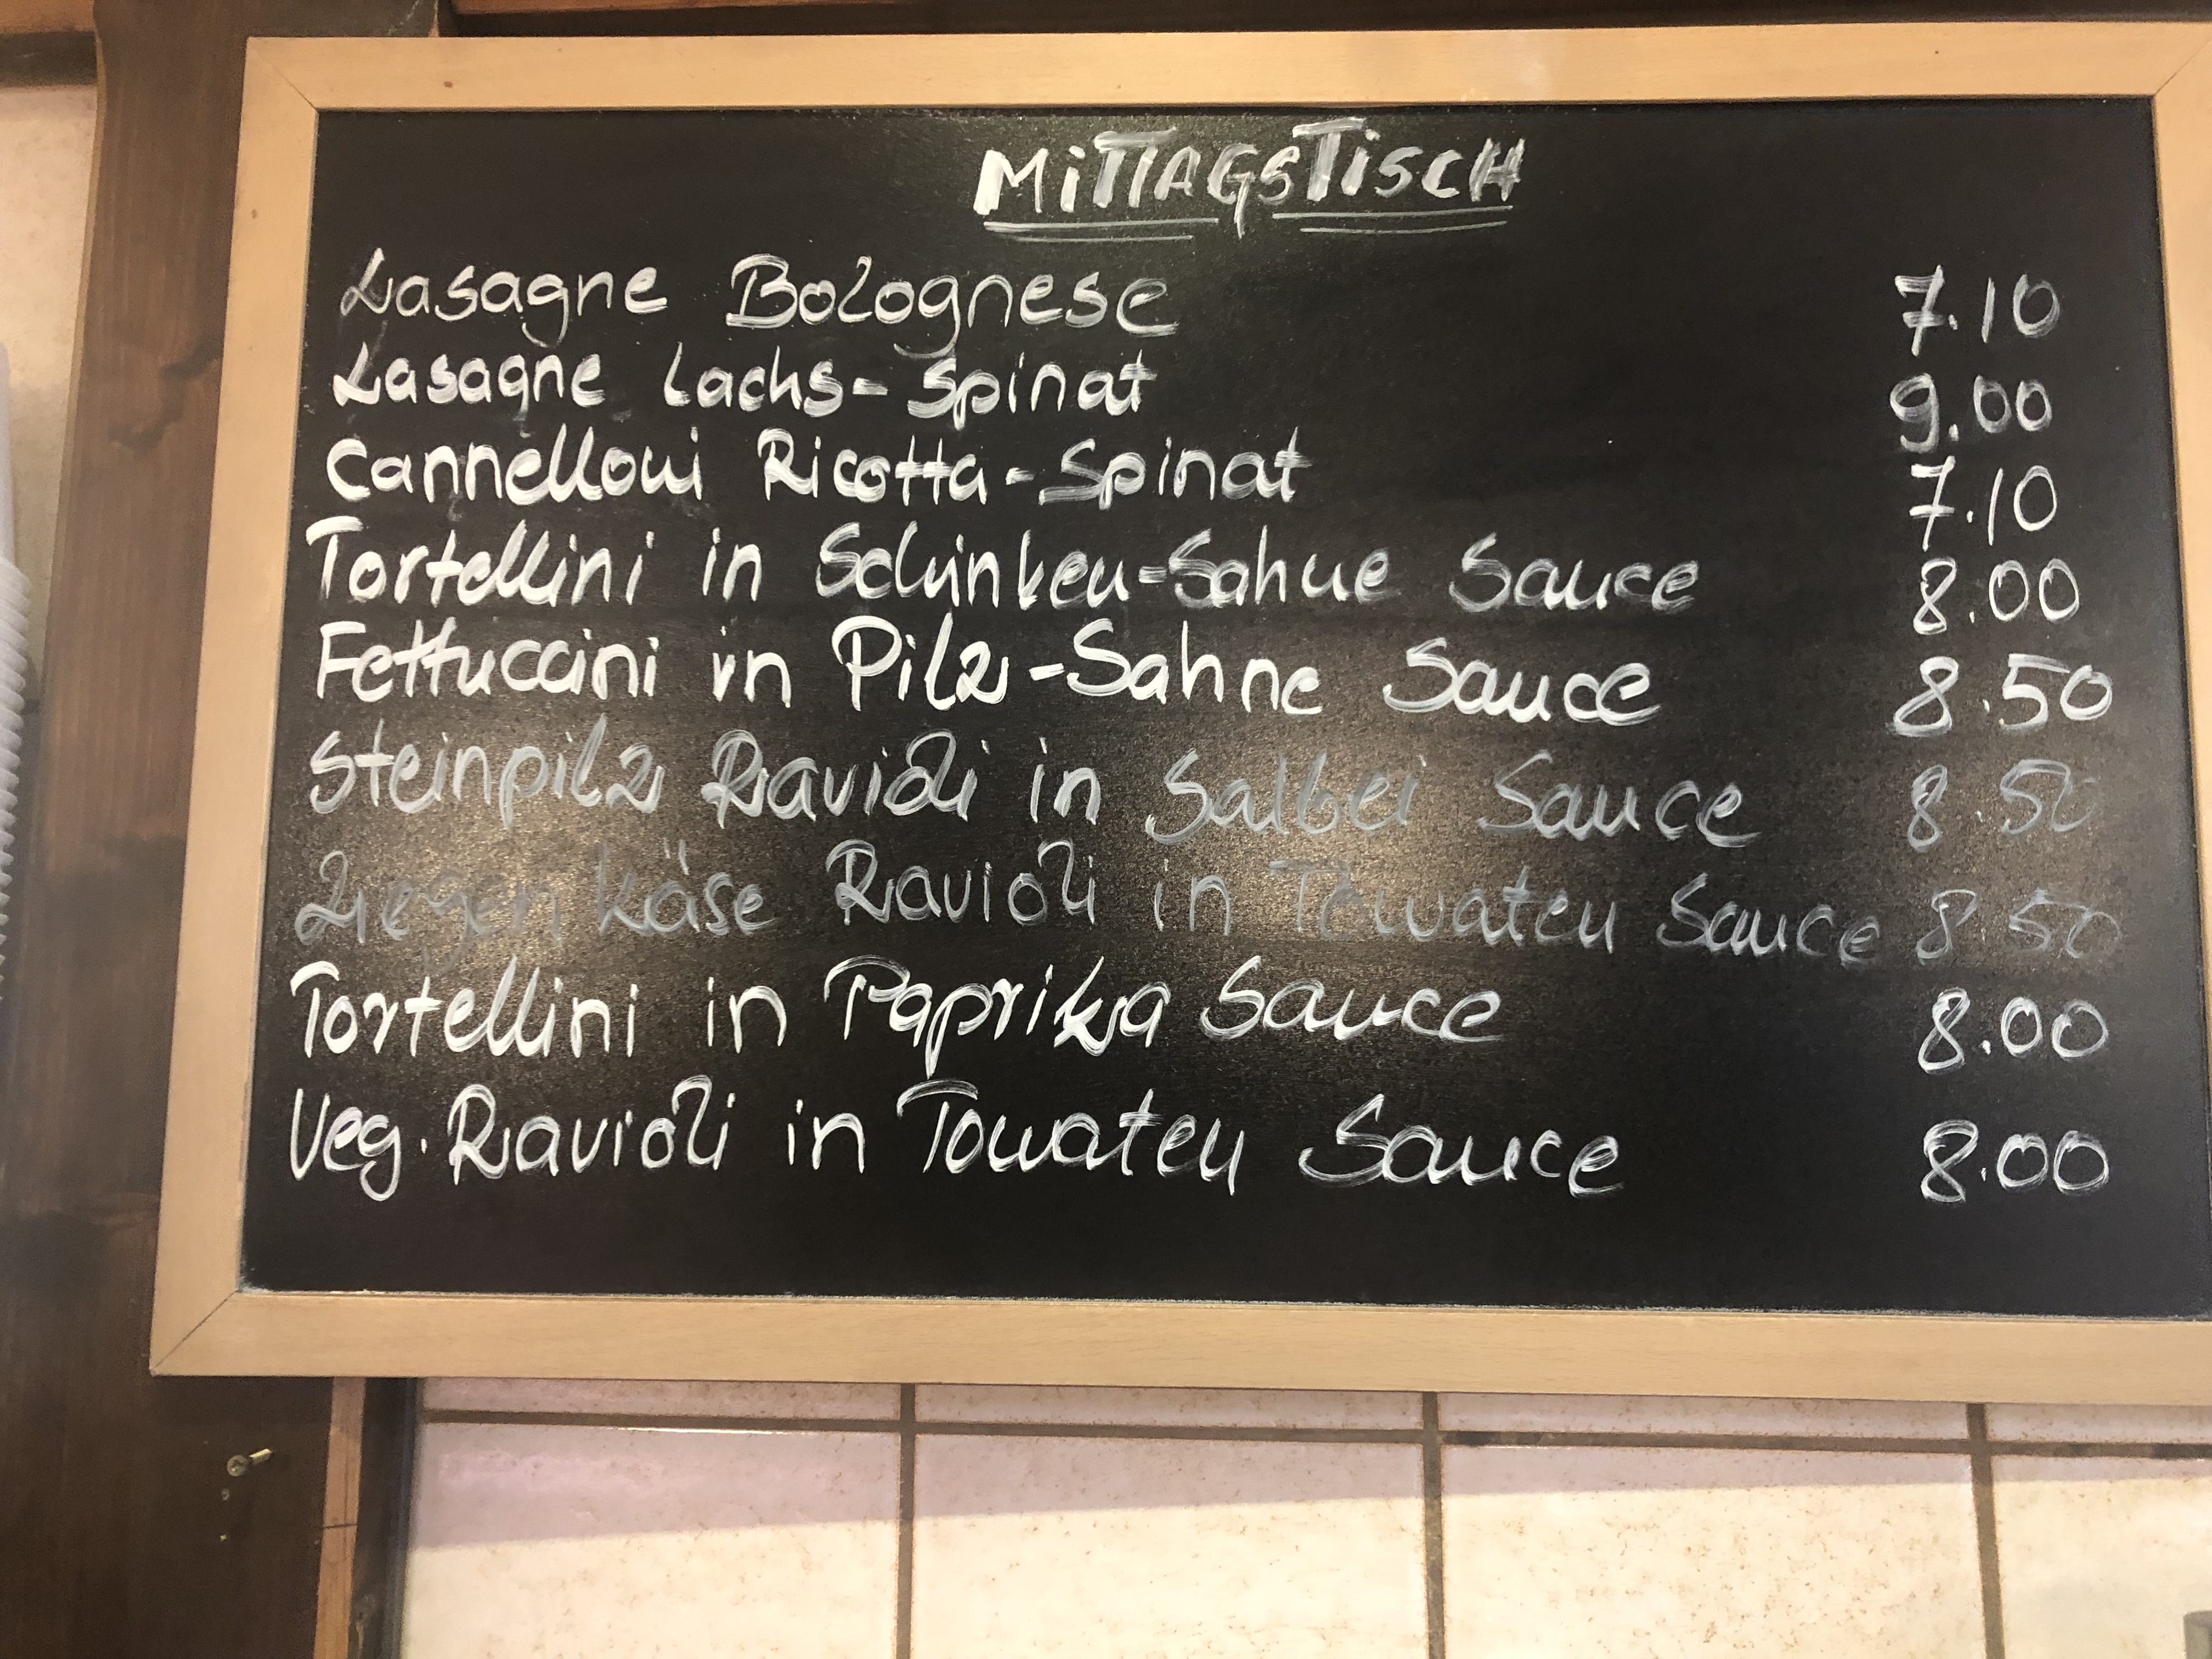 MiTTAGSTiSCH
Lasagne Bolognese 7.10
Lasagne Lachs-Spinat 9.00
Cannelloni Ricotta-Spinat 7.10
Tortellini in Schinken-Sahne Sauce 8.00
Fettuccini in Pilz-Sahne Sauce 8.50
Steinpilz Ravioli in Salbei Sauce 8.50
Ziegenkäse Ravioli in Tomaten Sauce 8.50
Tortellini in Paprika Sauce 8.00
Veg. Ravioli in Tomaten Sauce 8.00